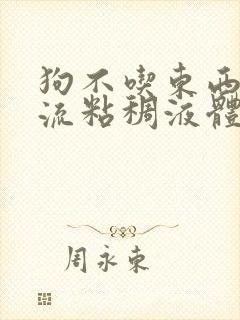 狗不喫東西
流粘稠液體
周永東